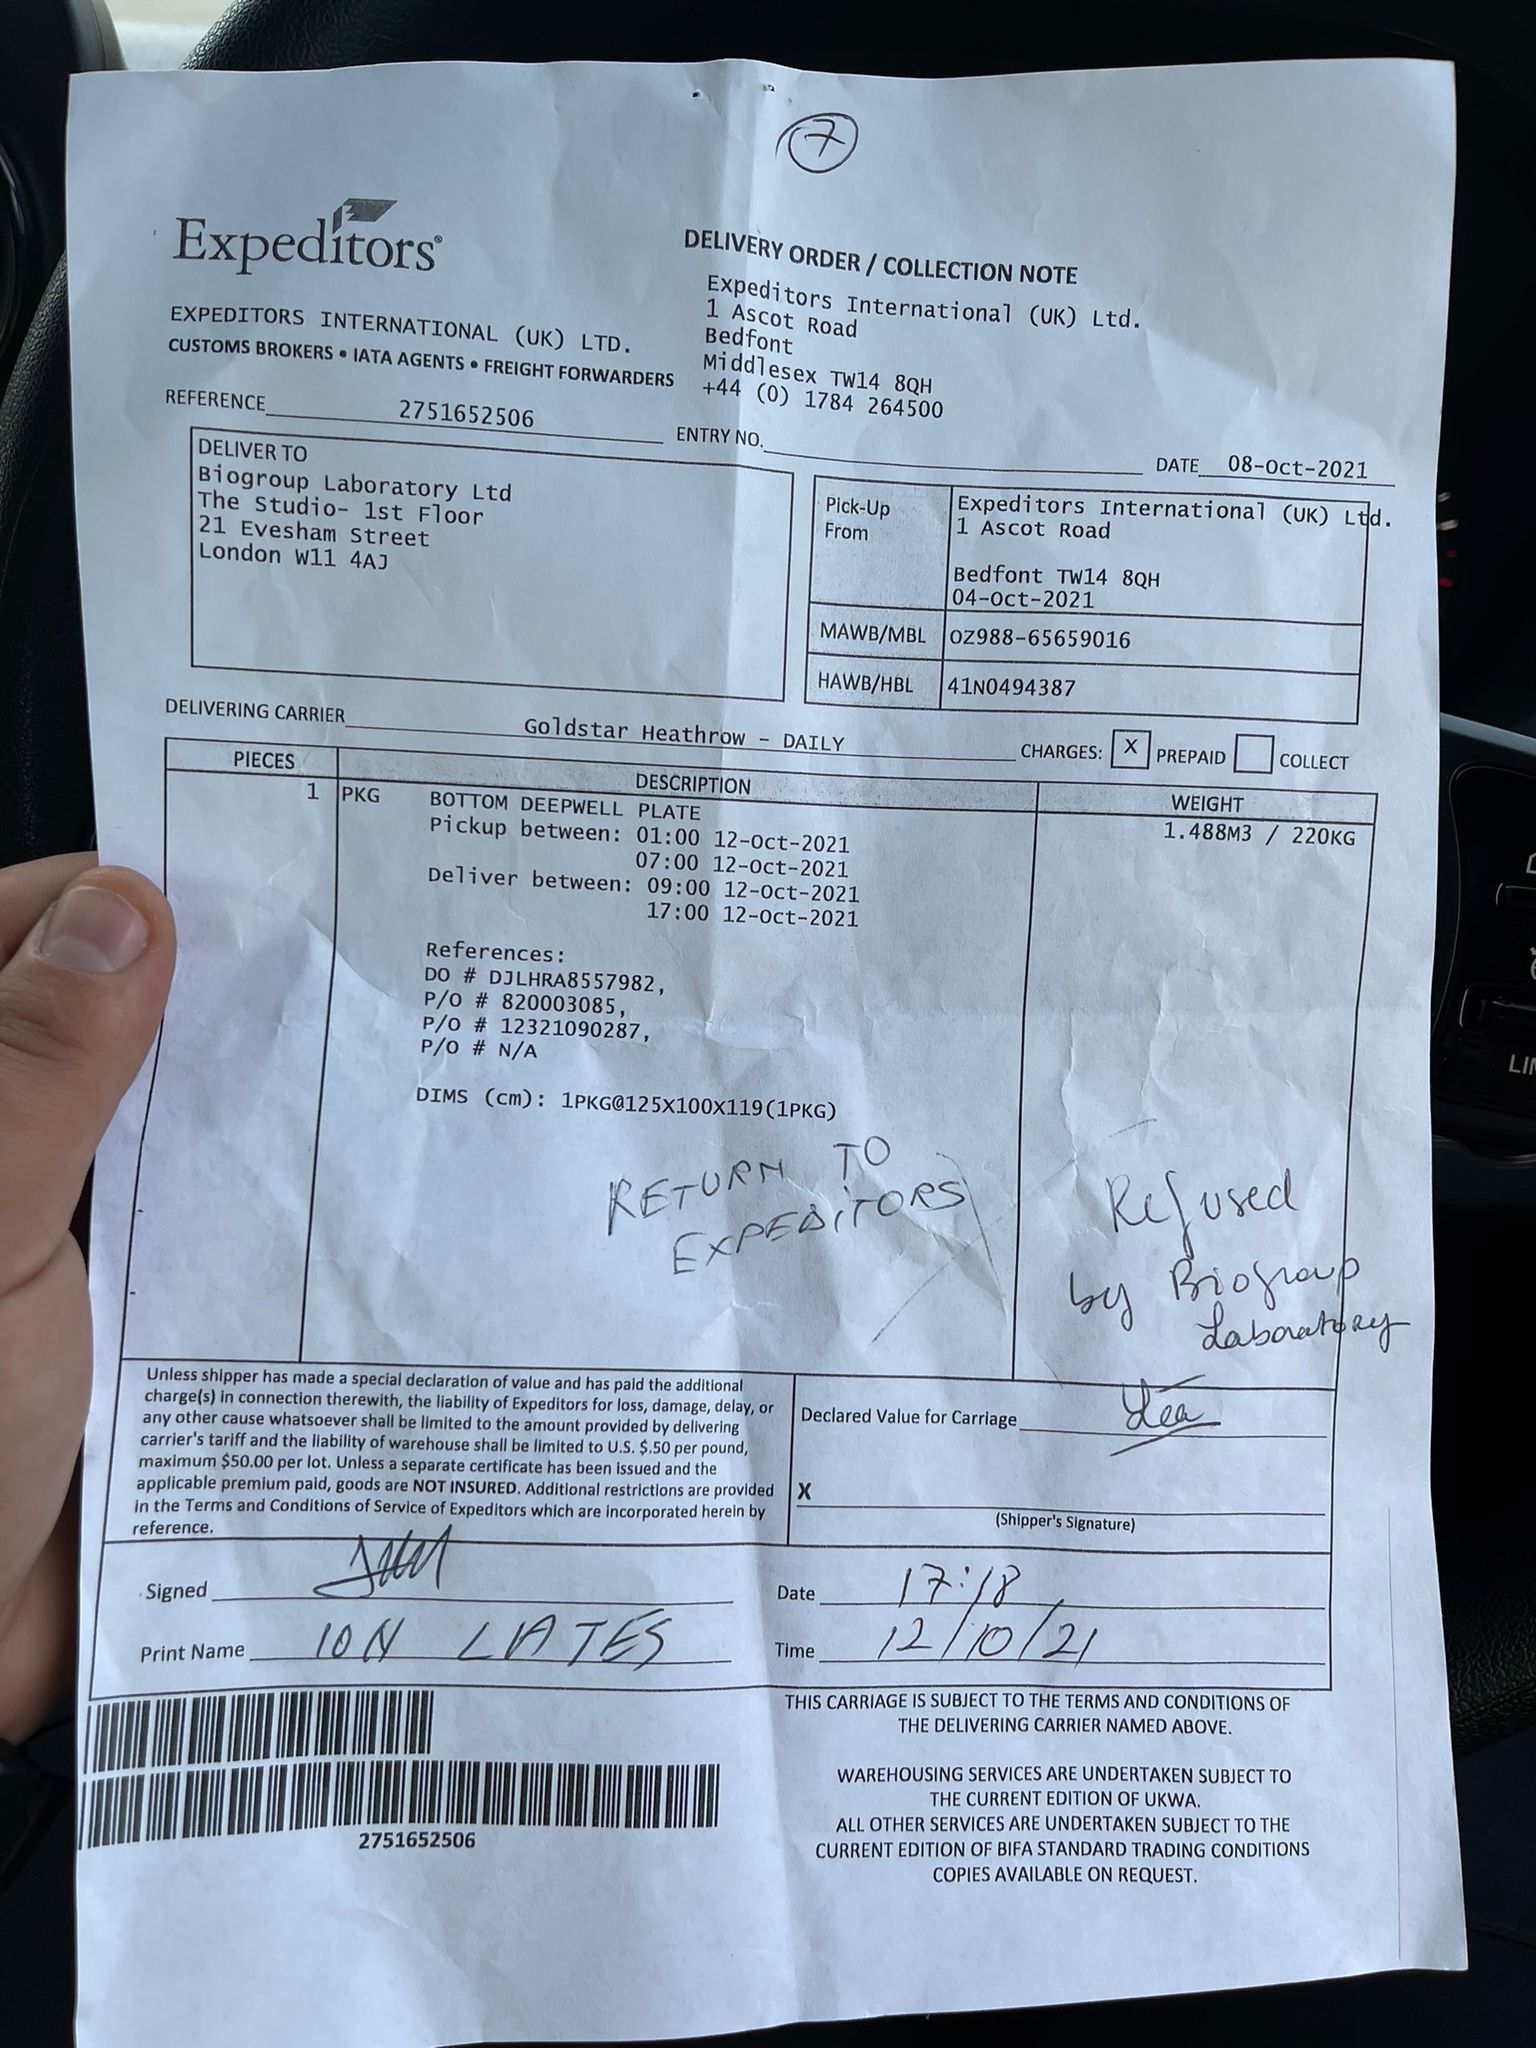 7
Expeditors®
DELIVERY ORDER / COLLECTION NOTE
Expeditors International (UK) Ltd.
1 Ascot Road
Bedfont
Middlesex TW14 8QH
+44 (0) 1784 264500
EXPEDITORS INTERNATIONAL (UK) LTD.
CUSTOMS BROKERS • IATA AGENTS • FREIGHT FORWARDERS
REFERENCE 2751652506
ENTRY NO.
DATE 08-Oct-2021
DELIVER TO
Biogroup Laboratory Ltd
The Studio- 1st Floor
21 Evesham Street
London W11 4AJ
Pick-Up From
Expeditors International (UK) Ltd.
1 Ascot Road
Bedfont TW14 8QH
04-Oct-2021
MAWB/MBL OZ988-65659016
HAWB/HBL 41N0494387
DELIVERING CARRIER Goldstar Heathrow - DAILY
CHARGES: X PREPAID COLLECT
PIECES DESCRIPTION WEIGHT
1 PKG BOTTOM DEEPWELL PLATE 1.488M3 / 220KG
Pickup between: 01:00 12-Oct-2021
07:00 12-Oct-2021
Deliver between: 09:00 12-Oct-2021
17:00 12-Oct-2021
References:
DO # DJLHRA8557982,
P/O # 820003085,
P/O # 12321090287,
P/O # N/A
DIMS (cm): 1PKG@125X100X119(1PKG)
RETURN TO
EXPEDITORS
Refused
by Biogroup
Laboratory
Unless shipper has made a special declaration of value and has paid the additional
charge(s) in connection therewith, the liability of Expeditors for loss, damage, delay, or
any other cause whatsoever shall be limited to the amount provided by delivering
carrier's tariff and the liability of warehouse shall be limited to U.S. $.50 per pound,
maximum $50.00 per lot. Unless a separate certificate has been issued and the
applicable premium paid, goods are NOT INSURED. Additional restrictions are provided
in the Terms and Conditions of Service of Expeditors which are incorporated herein by
reference.
Declared Value for Carriage
X
(Shipper's Signature)
Signed
Date 17:18
Print Name ION LATES
Time 12/10/21
2751652506
THIS CARRIAGE IS SUBJECT TO THE TERMS AND CONDITIONS OF
THE DELIVERING CARRIER NAMED ABOVE.
WAREHOUSING SERVICES ARE UNDERTAKEN SUBJECT TO
THE CURRENT EDITION OF UKWA.
ALL OTHER SERVICES ARE UNDERTAKEN SUBJECT TO THE
CURRENT EDITION OF BIFA STANDARD TRADING CONDITIONS
COPIES AVAILABLE ON REQUEST.